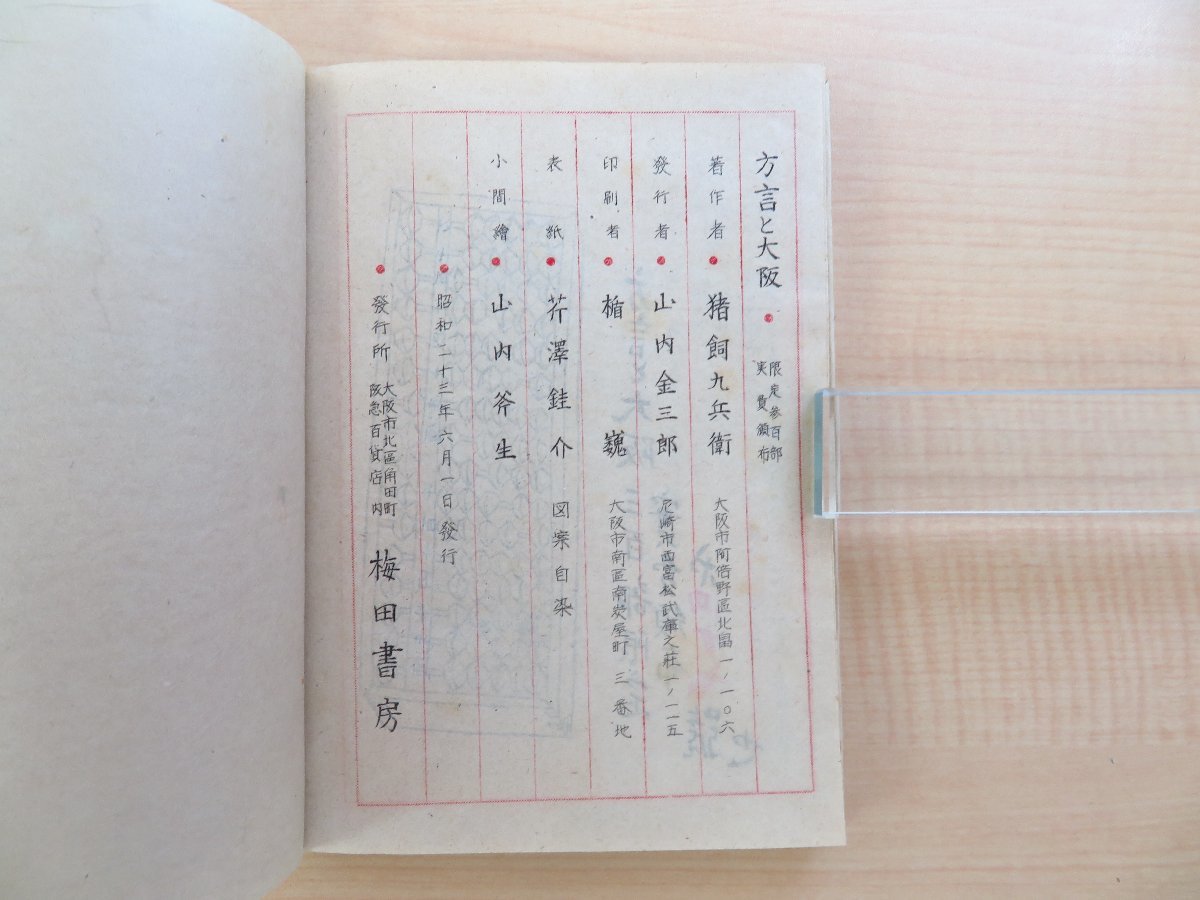 方言と大阪 ● 限定参百部
実費頒布
著作者 ● 猪飼九兵衛 大阪市阿倍野區北畠一ノ一〇六
發行者 ● 山内金三郎 尼崎市西富松武庫之莊一ノ一一五
印刷者 ● 楯 巍 大阪市南區南炭屋町三番地
表紙 ● 芹澤銈介 図案自染
小間繪 ● 山内斧生
● 昭和二十三年六月一日發行
● 發行所 大阪市北區角田町
阪急百貨店内 梅田書房